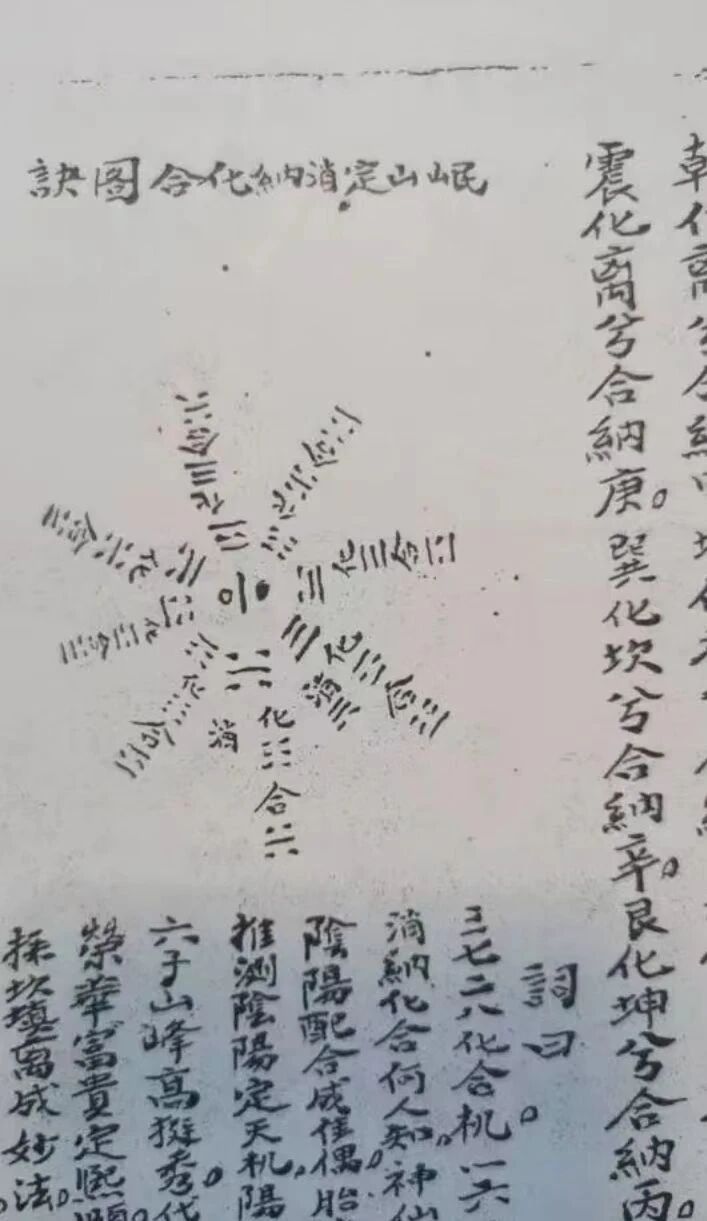 震化离兮合納庚。巽化坎兮合納辛。艮化坤兮合納丙。
岷山定消納化合圖訣
化合
化合
化合
化合
化合
化合
化合
化合
消
消
詞曰
三七二八化合机。一六
消納化合何人知。神仙
陰陽配合成佳偶。胎
推測陰陽定天机。陽
六子山峰高挺秀。代
榮華富貴定熙
採坎填离成妙法。